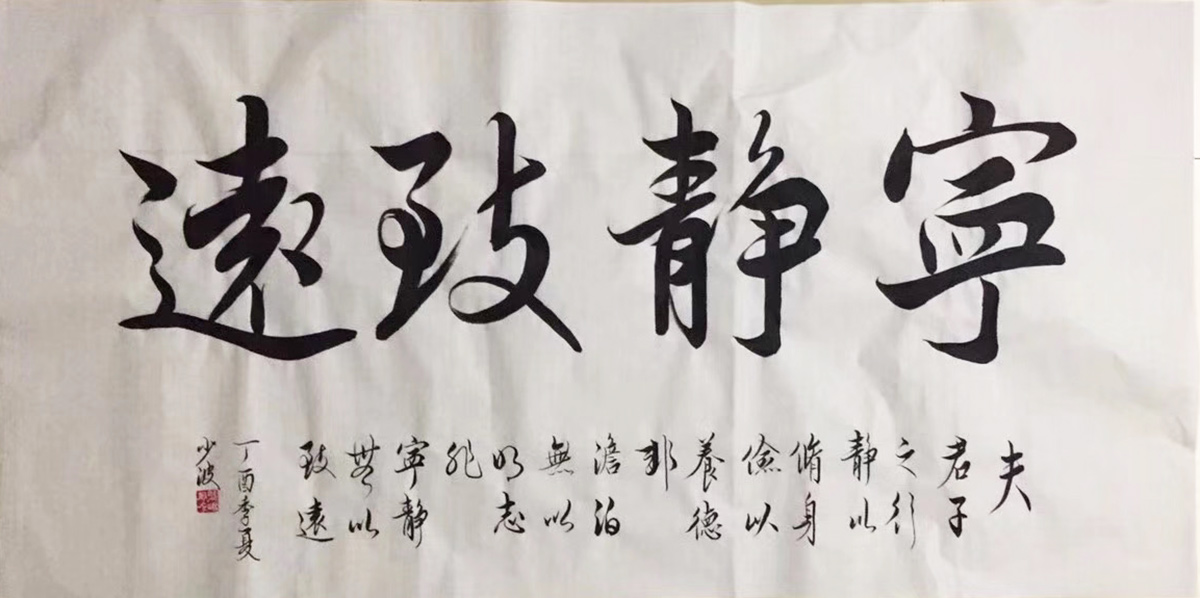 寧靜致遠
夫
君子
之行
靜以
脩身
儉以
養德
非
澹泊
無以
明志
非
寧靜
無以
致遠
丁酉季夏
少波